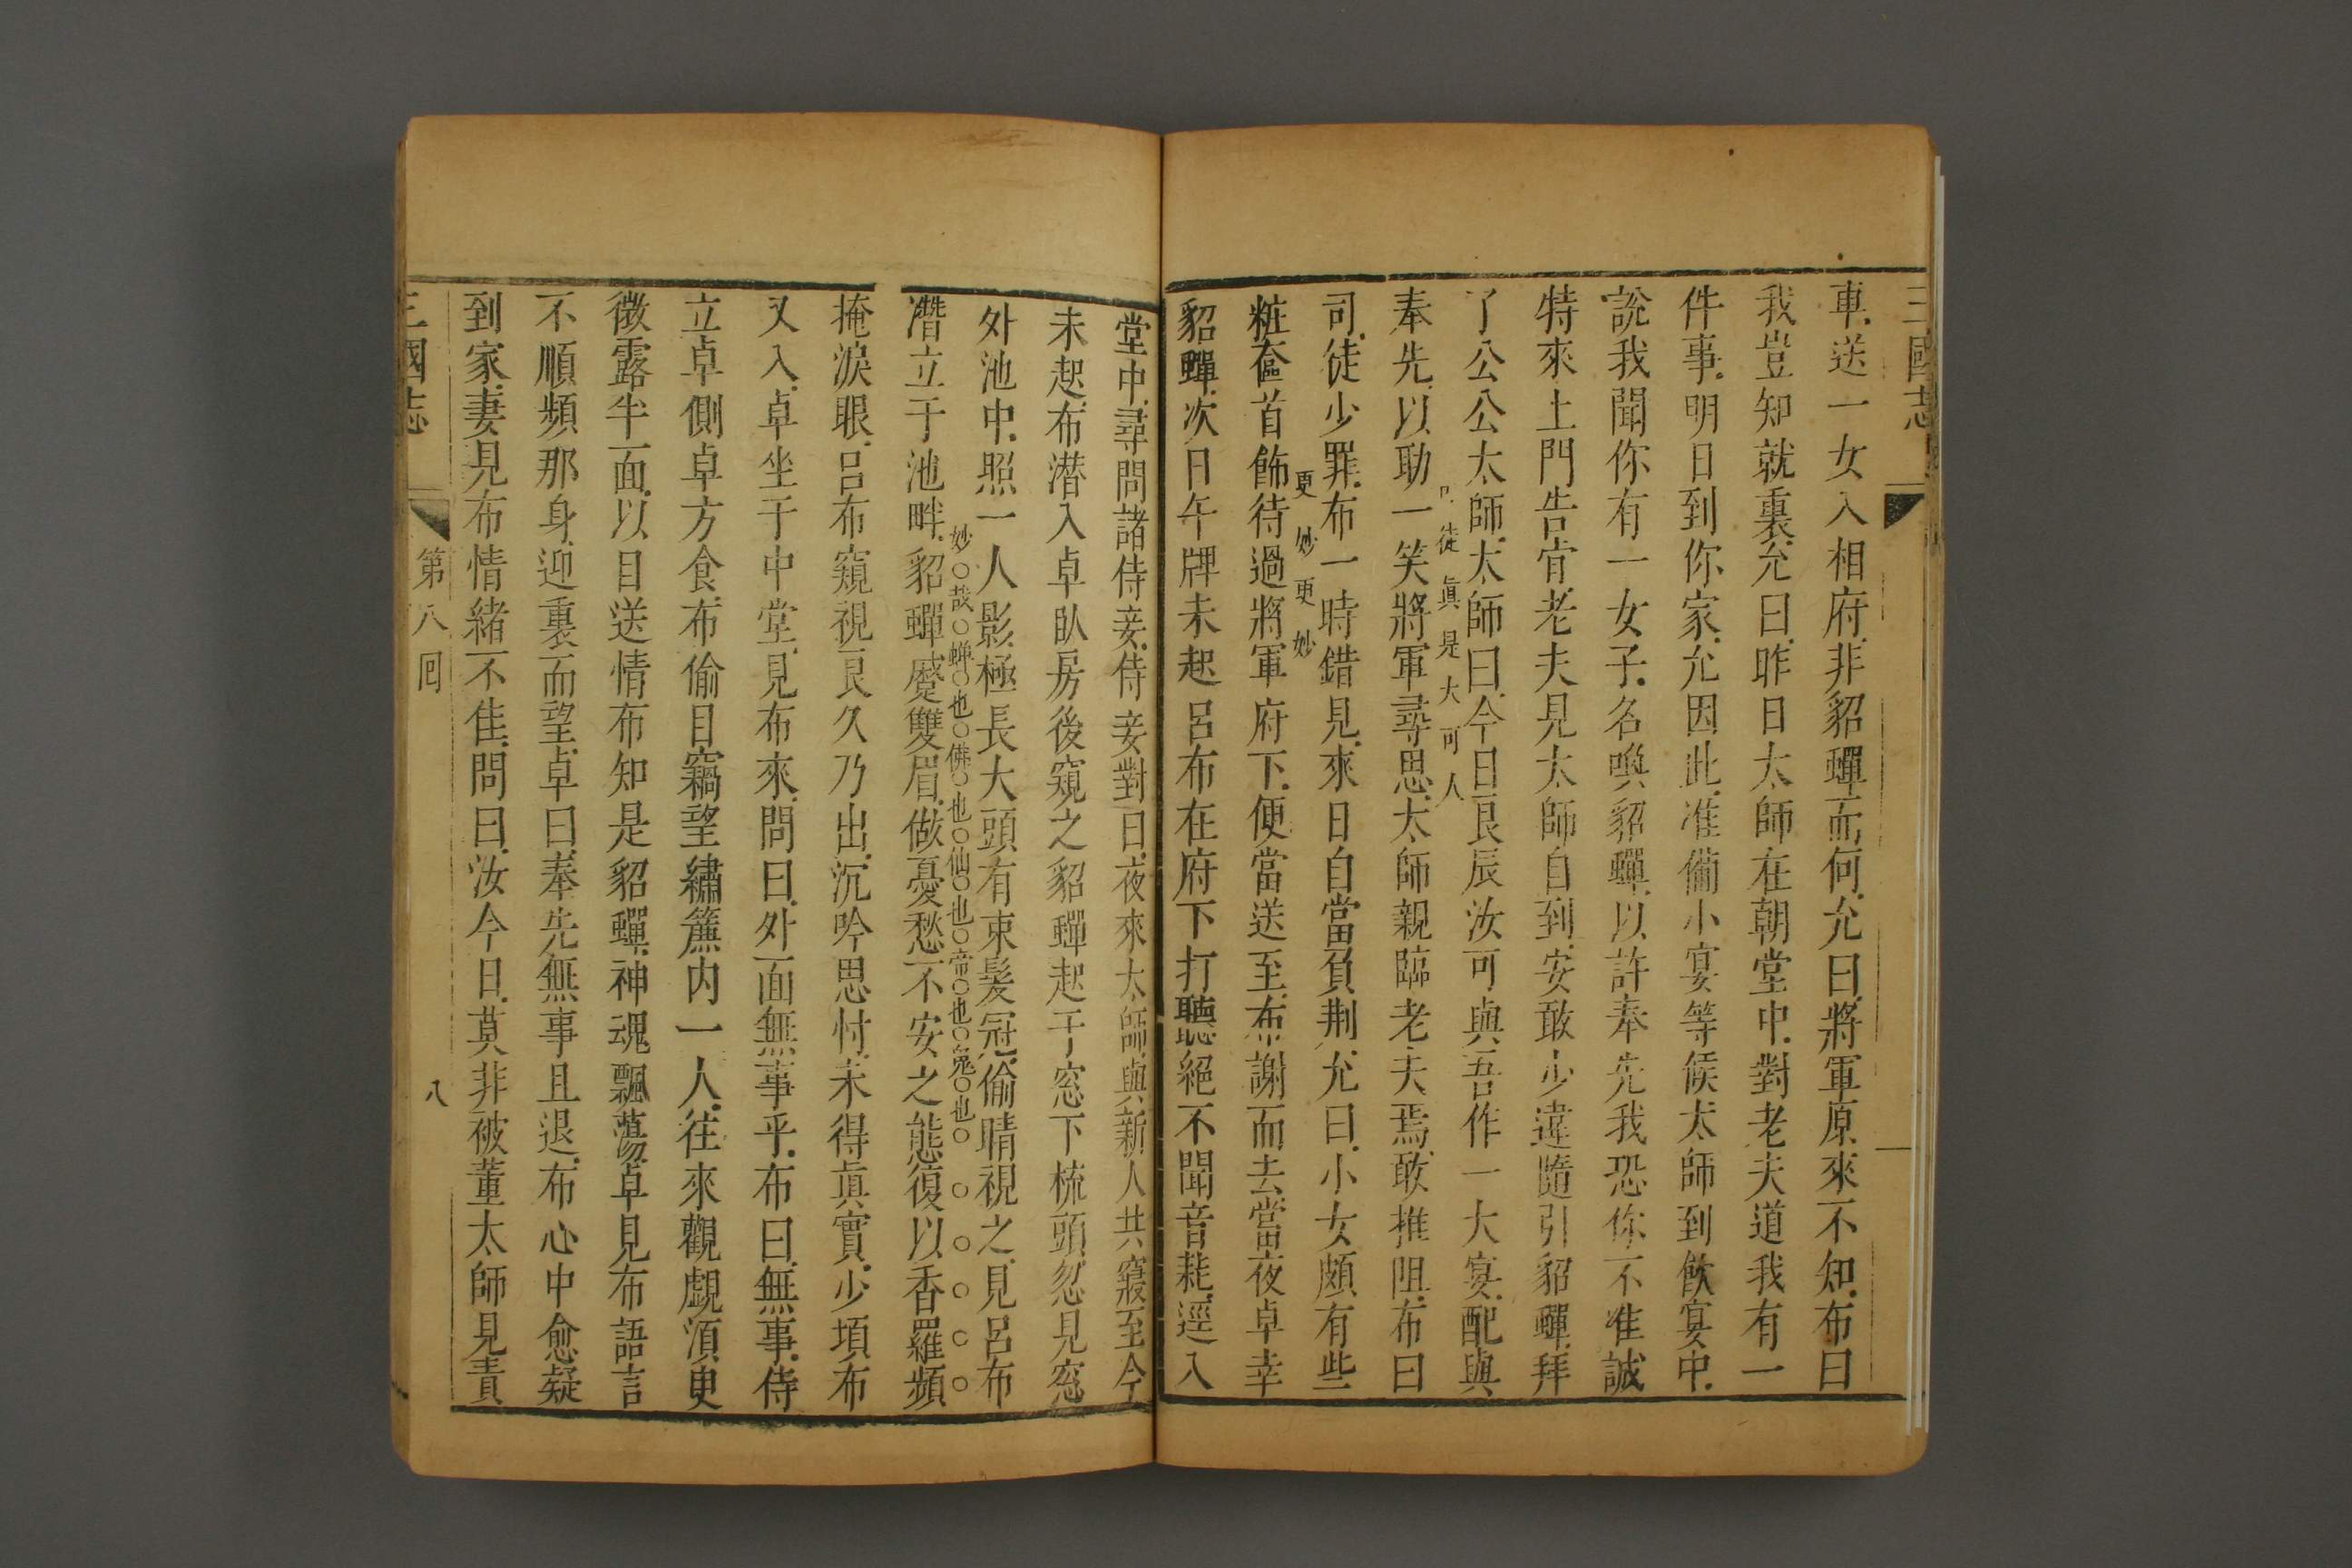 三國志
車送一女入相府非貂蟬而何允曰將軍原來不知布曰
我豈知就裏允曰昨日太師在朝堂中對老夫道我有一
件事明日到你家允因此准備小宴等候太師到飲宴中
說我聞你有一女子名喚貂蟬以許奉先我恐你不准誠
特來上門告肎老夫見太師自到安敢少違隨引貂蟬拜
了公公太師太師曰今日良辰汝可與吾作一大宴配與
徒真是大可人
奉先以助一笑將軍尋思太師親臨老夫焉敢推阻布曰
司徒少罪布一時錯見來日自當負荆允曰小女頗有些
更妙更妙
粧奩首飾待過將軍府下便當送至布謝而去當夜卓幸
貂蟬次日午牌未起呂布在府下打聽絕不聞音耗逕入
堂中尋問諸侍妾侍妾對曰夜來太師與新人共寢至今
未起布潛入卓臥房後窺之貂蟬起于窓下梳頭忽見窓
外池中照一人影極長大頭有束髮冠偷睛視之見呂布
妙哉蟬也佛也仙也帝也鬼也
潛立于池畔貂蟬蹙雙眉做憂愁不安之態復以香羅頻
掩淚眼呂布窺視良久乃出沉吟思忖未得真實少頃布
又入卓坐于中堂見布來問曰外面無事乎布曰無事侍
立卓側卓方食布偷目竊望繡簾內一人往來觀覷須臾
微露半面以目送情布知是貂蟬神魂飄蕩卓見布語言
不順頻那身迎裏而望卓曰奉先無事且退布心中愈疑
到家妻見布情緒不佳問曰汝今日莫非被董太師見責
三國志 第八回 八